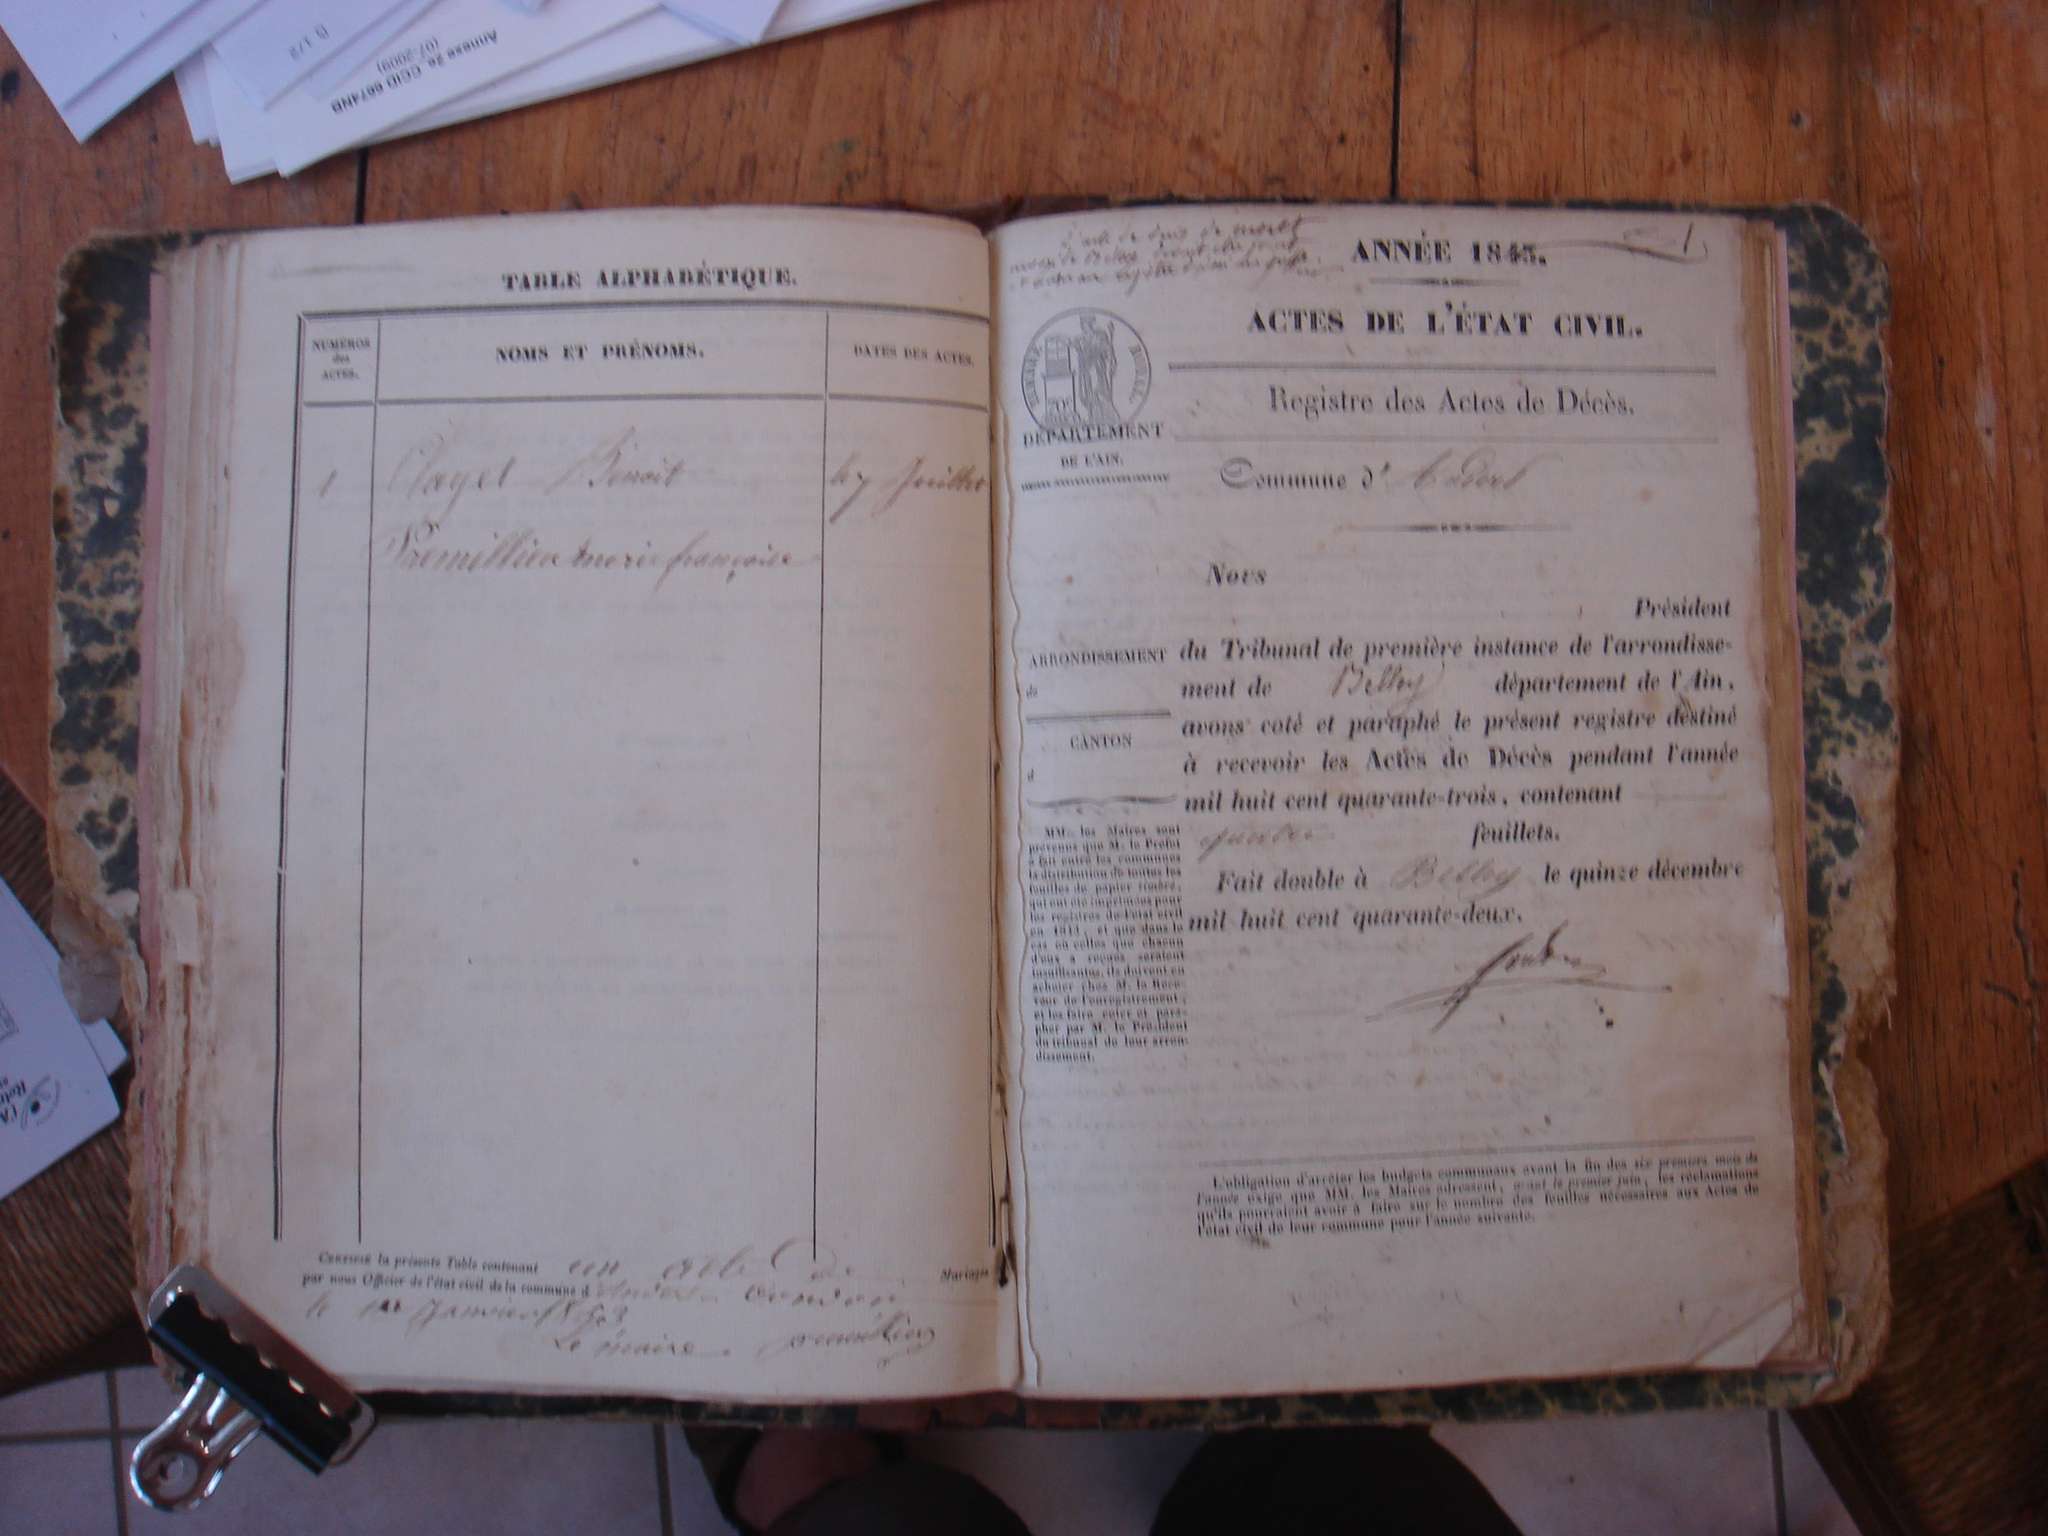 D 1/2
Annexe 2a, CCID 6674NB
(07-2009)
TABLE ALPHABÉTIQUE.
NUMEROS des ACTES.
NOMS ET PRÉNOMS.
DATES DES ACTES.
1 Clayet Benoit le 7 Juillet
Premillieu marie françoise
CERTIFIÉ la présente Table contenant un acte de Mariages
par nous Officier de l'état civil de la commune d
le 1er Janvier
Le maire. premillieu
1
ANNÉE 1843.
ACTES DE L'ÉTAT CIVIL.
Registre des Actes de Décès.
TIMBRE ROYAL
DÉPARTEMENT
DE L'AIN.
Commune d'
Nous
Président
ARRONDISSEMENT
de
CANTON
d
du Tribunal de première instance de l'arrondisse-
ment de Belley département de l'Ain,
avons coté et paraphé le présent registre destiné
à recevoir les Actes de Décès pendant l'année
mil huit cent quarante-trois, contenant
quatre feuillets.
Fait double à Belley le quinze décembre
mil huit cent quarante-deux.
MM. les Maires sont
prévenus que M. le Préfet
a fait entre les communes
la distribution de toutes les
feuilles de papier timbré,
qui ont été imprimées pour
les registres de l'état civil
en 1843, et que dans le
cas où celles que chacun
d'eux a reçues seraient
insuffisantes, ils doivent en
acheter chez M. le Rece-
veur de l'enregistrement,
et les faire coter et para-
pher par M. le Président
du tribunal de leur arron-
dissement.
L'obligation d'arrêter les budgets communaux avant la fin des six premiers mois de
l'année exige que MM. les Maires adressent, avant le premier juin, les réclamations
qu'ils pourraient avoir à faire sur le nombre des feuilles nécessaires aux Actes de
l'état civil de leur commune pour l'année suivante.